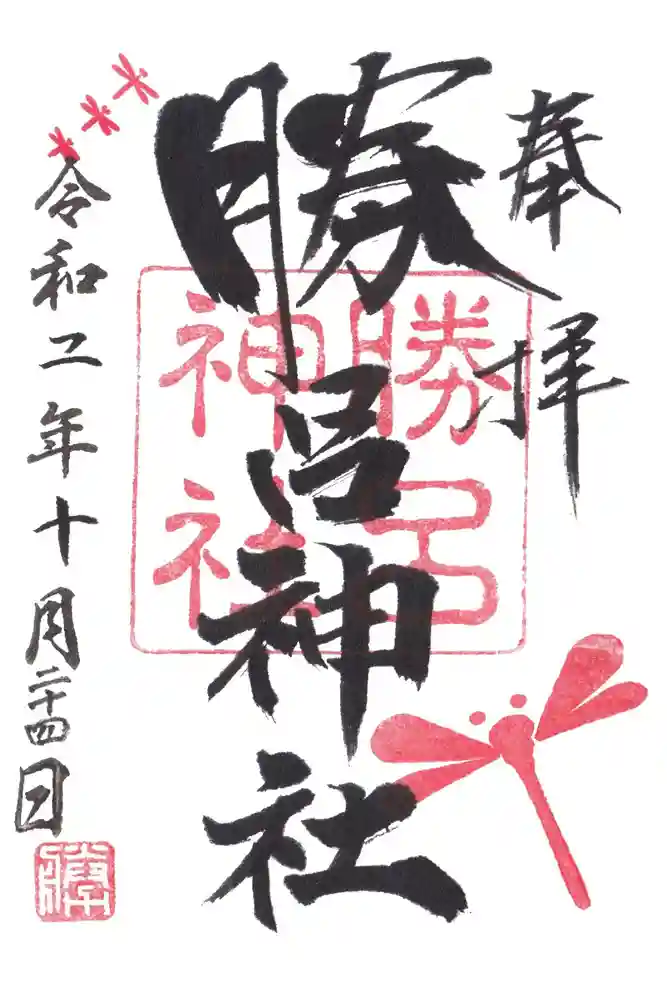 奉拝
勝呂神社
勝呂神社
令和二年十月二十四日
勝